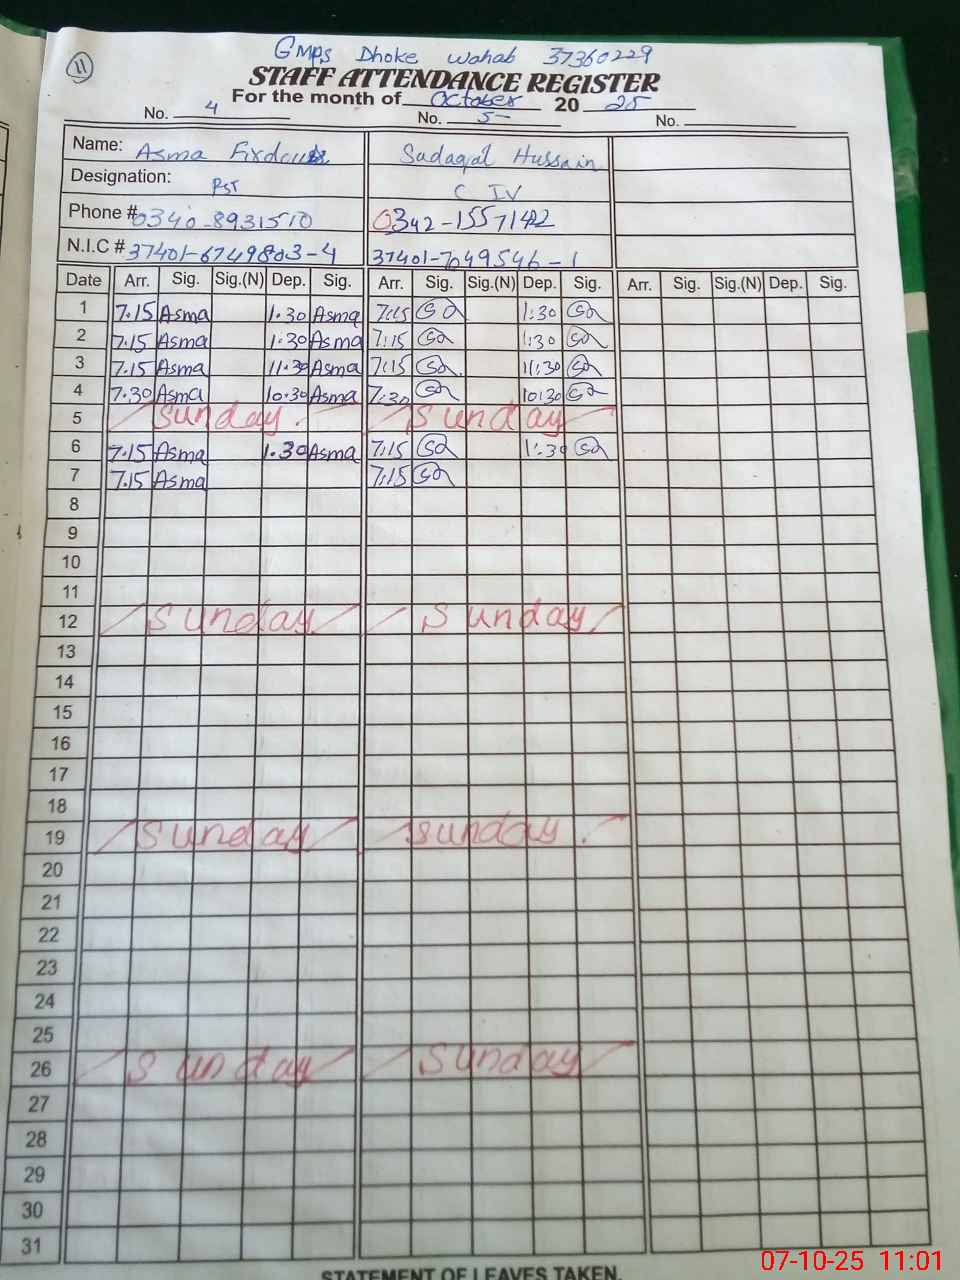 11
GMPS Dhoke Wahab 37360229
STAFF ATTENDANCE REGISTER
For the month of October 20 25
No. 4 No. 5 No.
Name: Asma Firdous Sadaqat Hussain
Designation: PST C IV
Phone # 0340-8931510 0342-1557142
N.I.C # 37401-6749803-4 37401-7049546-1
Date Arr. Sig. Sig.(N) Dep. Sig. Arr. Sig. Sig.(N) Dep. Sig. Arr. Sig. Sig.(N) Dep. Sig.
1 7.15 Asma 1.30 Asma 7:15 1:30
2 7.15 Asma 1.30 Asma 7:15 1:30
3 7.15 Asma 11.30 Asma 7:15 11:30
4 7.30 Asma 10.30 Asma 7:30 10:30
5 Sunday Sunday
6 7.15 Asma 1.30 Asma 7:15 1:30
7 7.15 Asma 7:15
8
9
10
11
12 Sunday Sunday
13
14
15
16
17
18
19 Sunday Sunday
20
21
22
23
24
25
26 Sunday Sunday
27
28
29
30
31
STATEMENT OF LEAVES TAKEN.
07-10-25 11:01